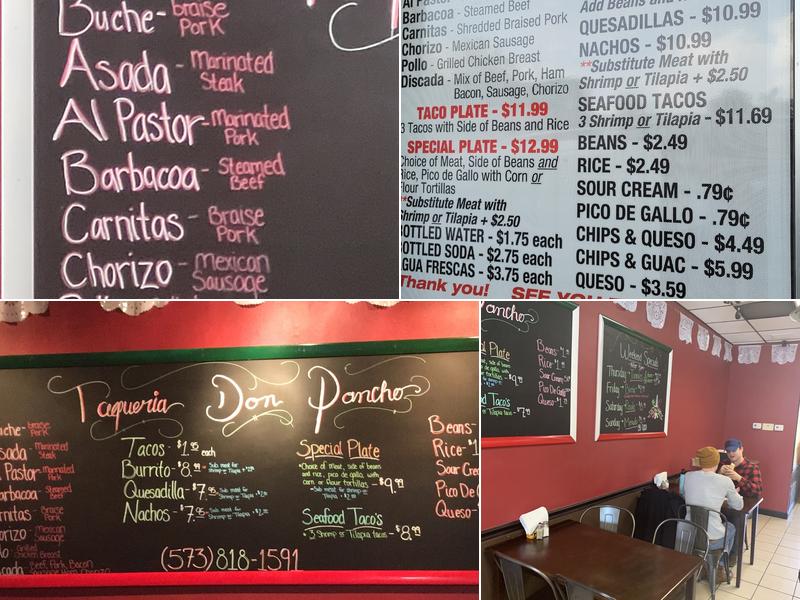 Buche - braise
Pork
Asada - Marinated
Steak
Al Pastor - Marinated
Pork
Barbacoa - Steamed
Beef
Carnitas - Braise
Pork
Chorizo - Mexican
Sausage
Al Pastor
Barbacoa - Steamed Beef
Carnitas - Shredded Braised Pork
Chorizo - Mexican Sausage
Pollo - Grilled Chicken Breast
Discada - Mix of Beef, Pork, Ham
Bacon, Sausage, Chorizo
TACO PLATE - $11.99
3 Tacos with Side of Beans and Rice
SPECIAL PLATE - $12.99
Choice of Meat, Side of Beans and
Rice, Pico de Gallo with Corn or
Flour Tortillas
**Substitute Meat with
Shrimp or Tilapia + $2.50
BOTTLED WATER - $1.75 each
BOTTLED SODA - $2.75 each
AGUA FRESCAS - $3.75 each
Thank you! SEE YOU
Add Beans and
QUESADILLAS - $10.99
NACHOS - $10.99
**Substitute Meat with
Shrimp or Tilapia + $2.50
SEAFOOD TACOS
3 Shrimp or Tilapia - $11.69
BEANS - $2.49
RICE - $2.49
SOUR CREAM - .79¢
PICO DE GALLO - .79¢
CHIPS & QUESO - $4.49
CHIPS & GUAC - $5.99
QUESO - $3.59
Taqueria Don Pancho
uche - braise
Pork
sada - Marinated
Steak
Pastor - Marinated
Pork
arbacoa - Steamed
Beef
rnitas - Braise
Pork
orizo - Mexican
Sausage
llo - Grilled
Chicken Breast
scada - Beef, Pork, Bacon
Sausage, Ham, Chorizo
Tacos - $1.95 each
Burrito - $8.99 *Sub meat for
shrimp or Tilapia
Quesadilla - $7.95 *Sub meat for
shrimp or Tilapia
Nachos - $7.95 *Sub meat for
Shrimp or Tilapia
Special Plate
*Choice of meat, side of beans
and rice, pico de gallo, with
corn or flour tortillas - $9.99
*Sub meat for shrimp
or Tilapia
Seafood Taco's
*3 Shrimp or Tilapia tacos - $8.99
Beans -
Rice - $1
Sour Crea
Pico De G
Queso -
(573)818-1591
Pancho
al Plate
$9.99
d Taco's
$7
Beans
Rice
Sour Cream
Pico De Gallo
Queso
Weekend Specials
Thursday
Friday
Saturday
Sunday